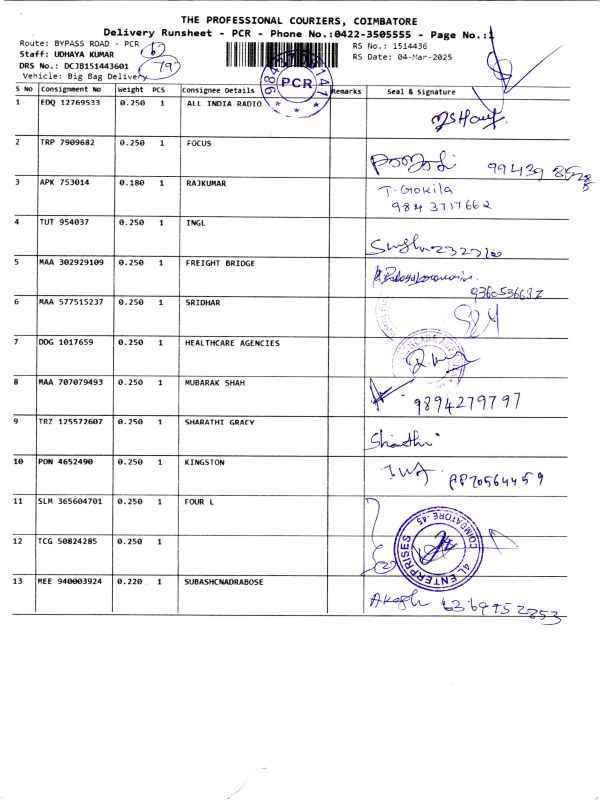 THE PROFESSIONAL COURIERS, COIMBATORE
Delivery Runsheet - PCR - Phone No.:0422-3505555 - Page No.:1
Route: BYPASS ROAD - PCR
RS No.: 1514436
Staff: UDHAYA KUMAR
RS Date: 04-Mar-2025
DRS No.: DCJB151443601
79
Vehicle: Big Bag Delivery
PCR
S No Consignment No Weight PCS Consignee Details Remarks Seal & Signature
1 EDQ 12769533 0.250 1 ALL INDIA RADIO
2 TRP 7909682 0.250 1 FOCUS
99439
3 APK 753014 0.180 1 RAJKUMAR
T. Gokila
984 3717662
4 TUT 954037 0.250 1 INGL
5 MAA 302929109 0.250 1 FREIGHT BRIDGE
9360536692
6 MAA 577515237 0.250 1 SRIDHAR
7 DDG 1017659 0.250 1 HEALTHCARE AGENCIES
8 MAA 707079493 0.250 1 MUBARAK SHAH
9894279797
9 TRZ 125572607 0.250 1 SHARATHI GRACY
10 PON 4652490 0.250 1 KINGSTON
11 SLM 365604701 0.250 1 FOUR L
12 TCG 50824285 0.250 1
4L ENTERPRISES COIMBATORE - 45
13 MEE 940003924 0.220 1 SUBASHCNADRABOSE
Akash 6369952253